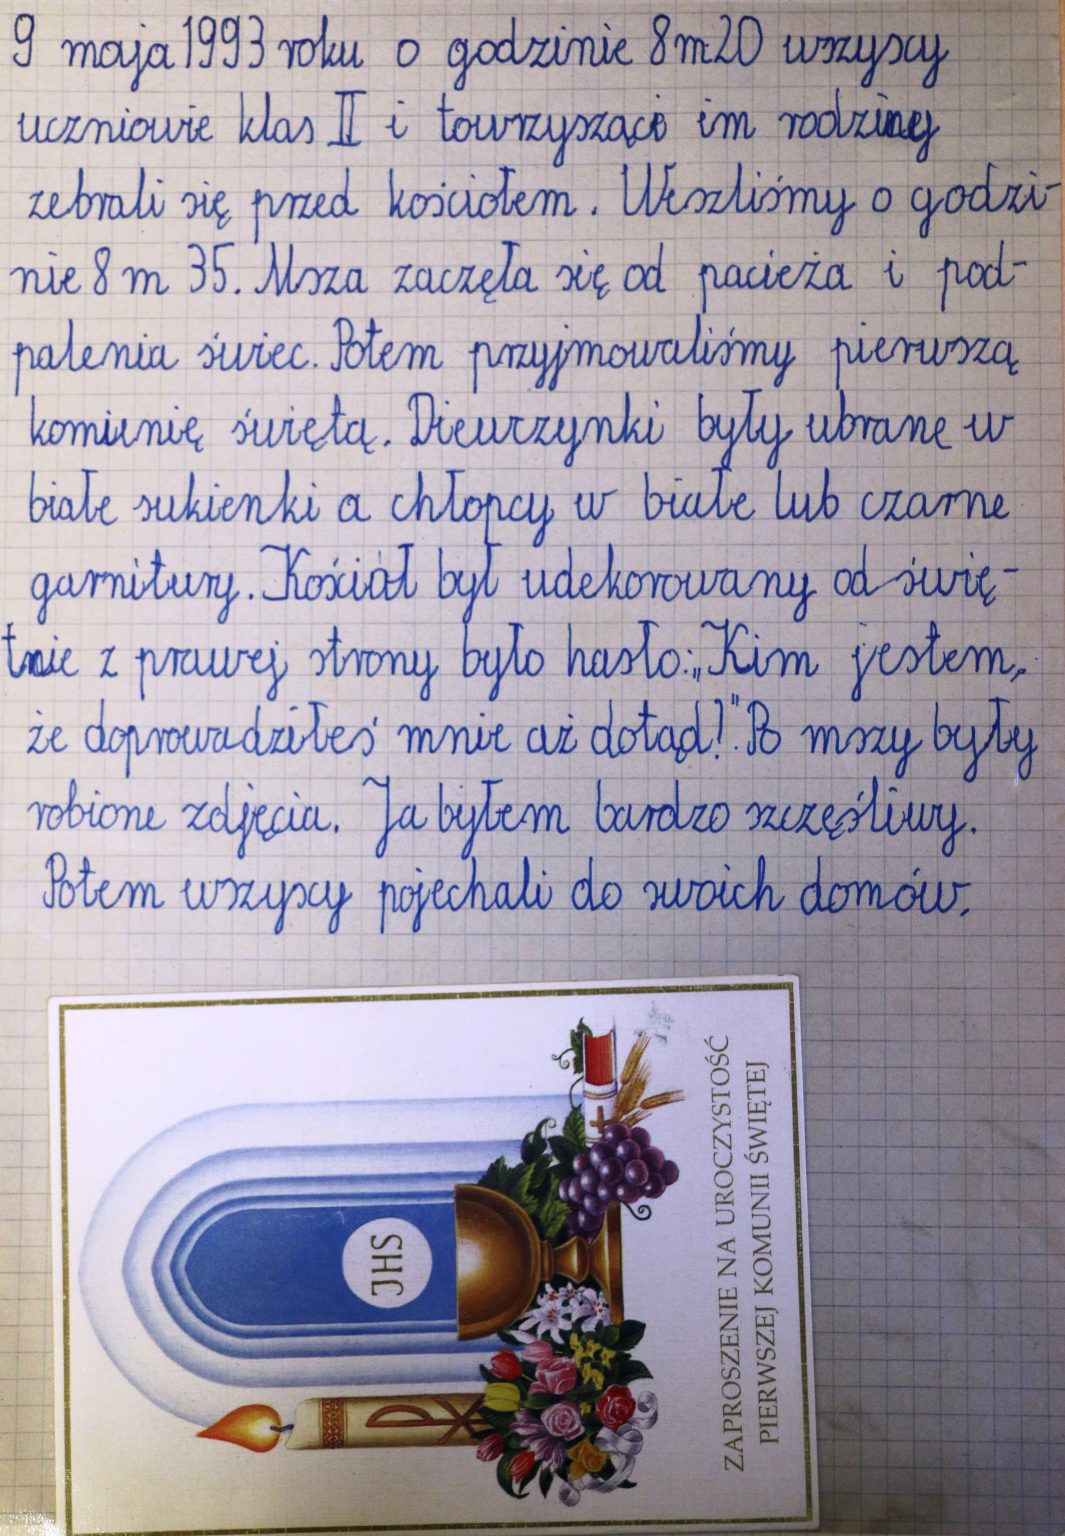 9 maja 1993 roku o godzinie 8 m 20 wszyscy
uczniowie klas II i towrzyszące im rodziny
zebrali się przed kościołem. Weszliśmy o godzi-
nie 8 m 35. Msza zaczęła się od pacieża i pod-
palenia świec. Potem przyjmowaliśmy pierwszą
komunię świętą. Dziewczynki były ubrane w
białe sukienki a chłopcy w białe lub czarne
garnitury. Kościół był udekorowany od świę-
tnie z prawej strony było hasło: „Kim jestem,
że doprowadziłeś mnie aż dotąd!". Po mszy były
robione zdjęcia. Ja byłem bardzo szczęśliwy.
Potem wszyscy pojechali do swoich domów.
JHS
ZAPROSZENIE NA UROCZYSTOŚĆ
PIERWSZEJ KOMUNII ŚWIĘTEJ